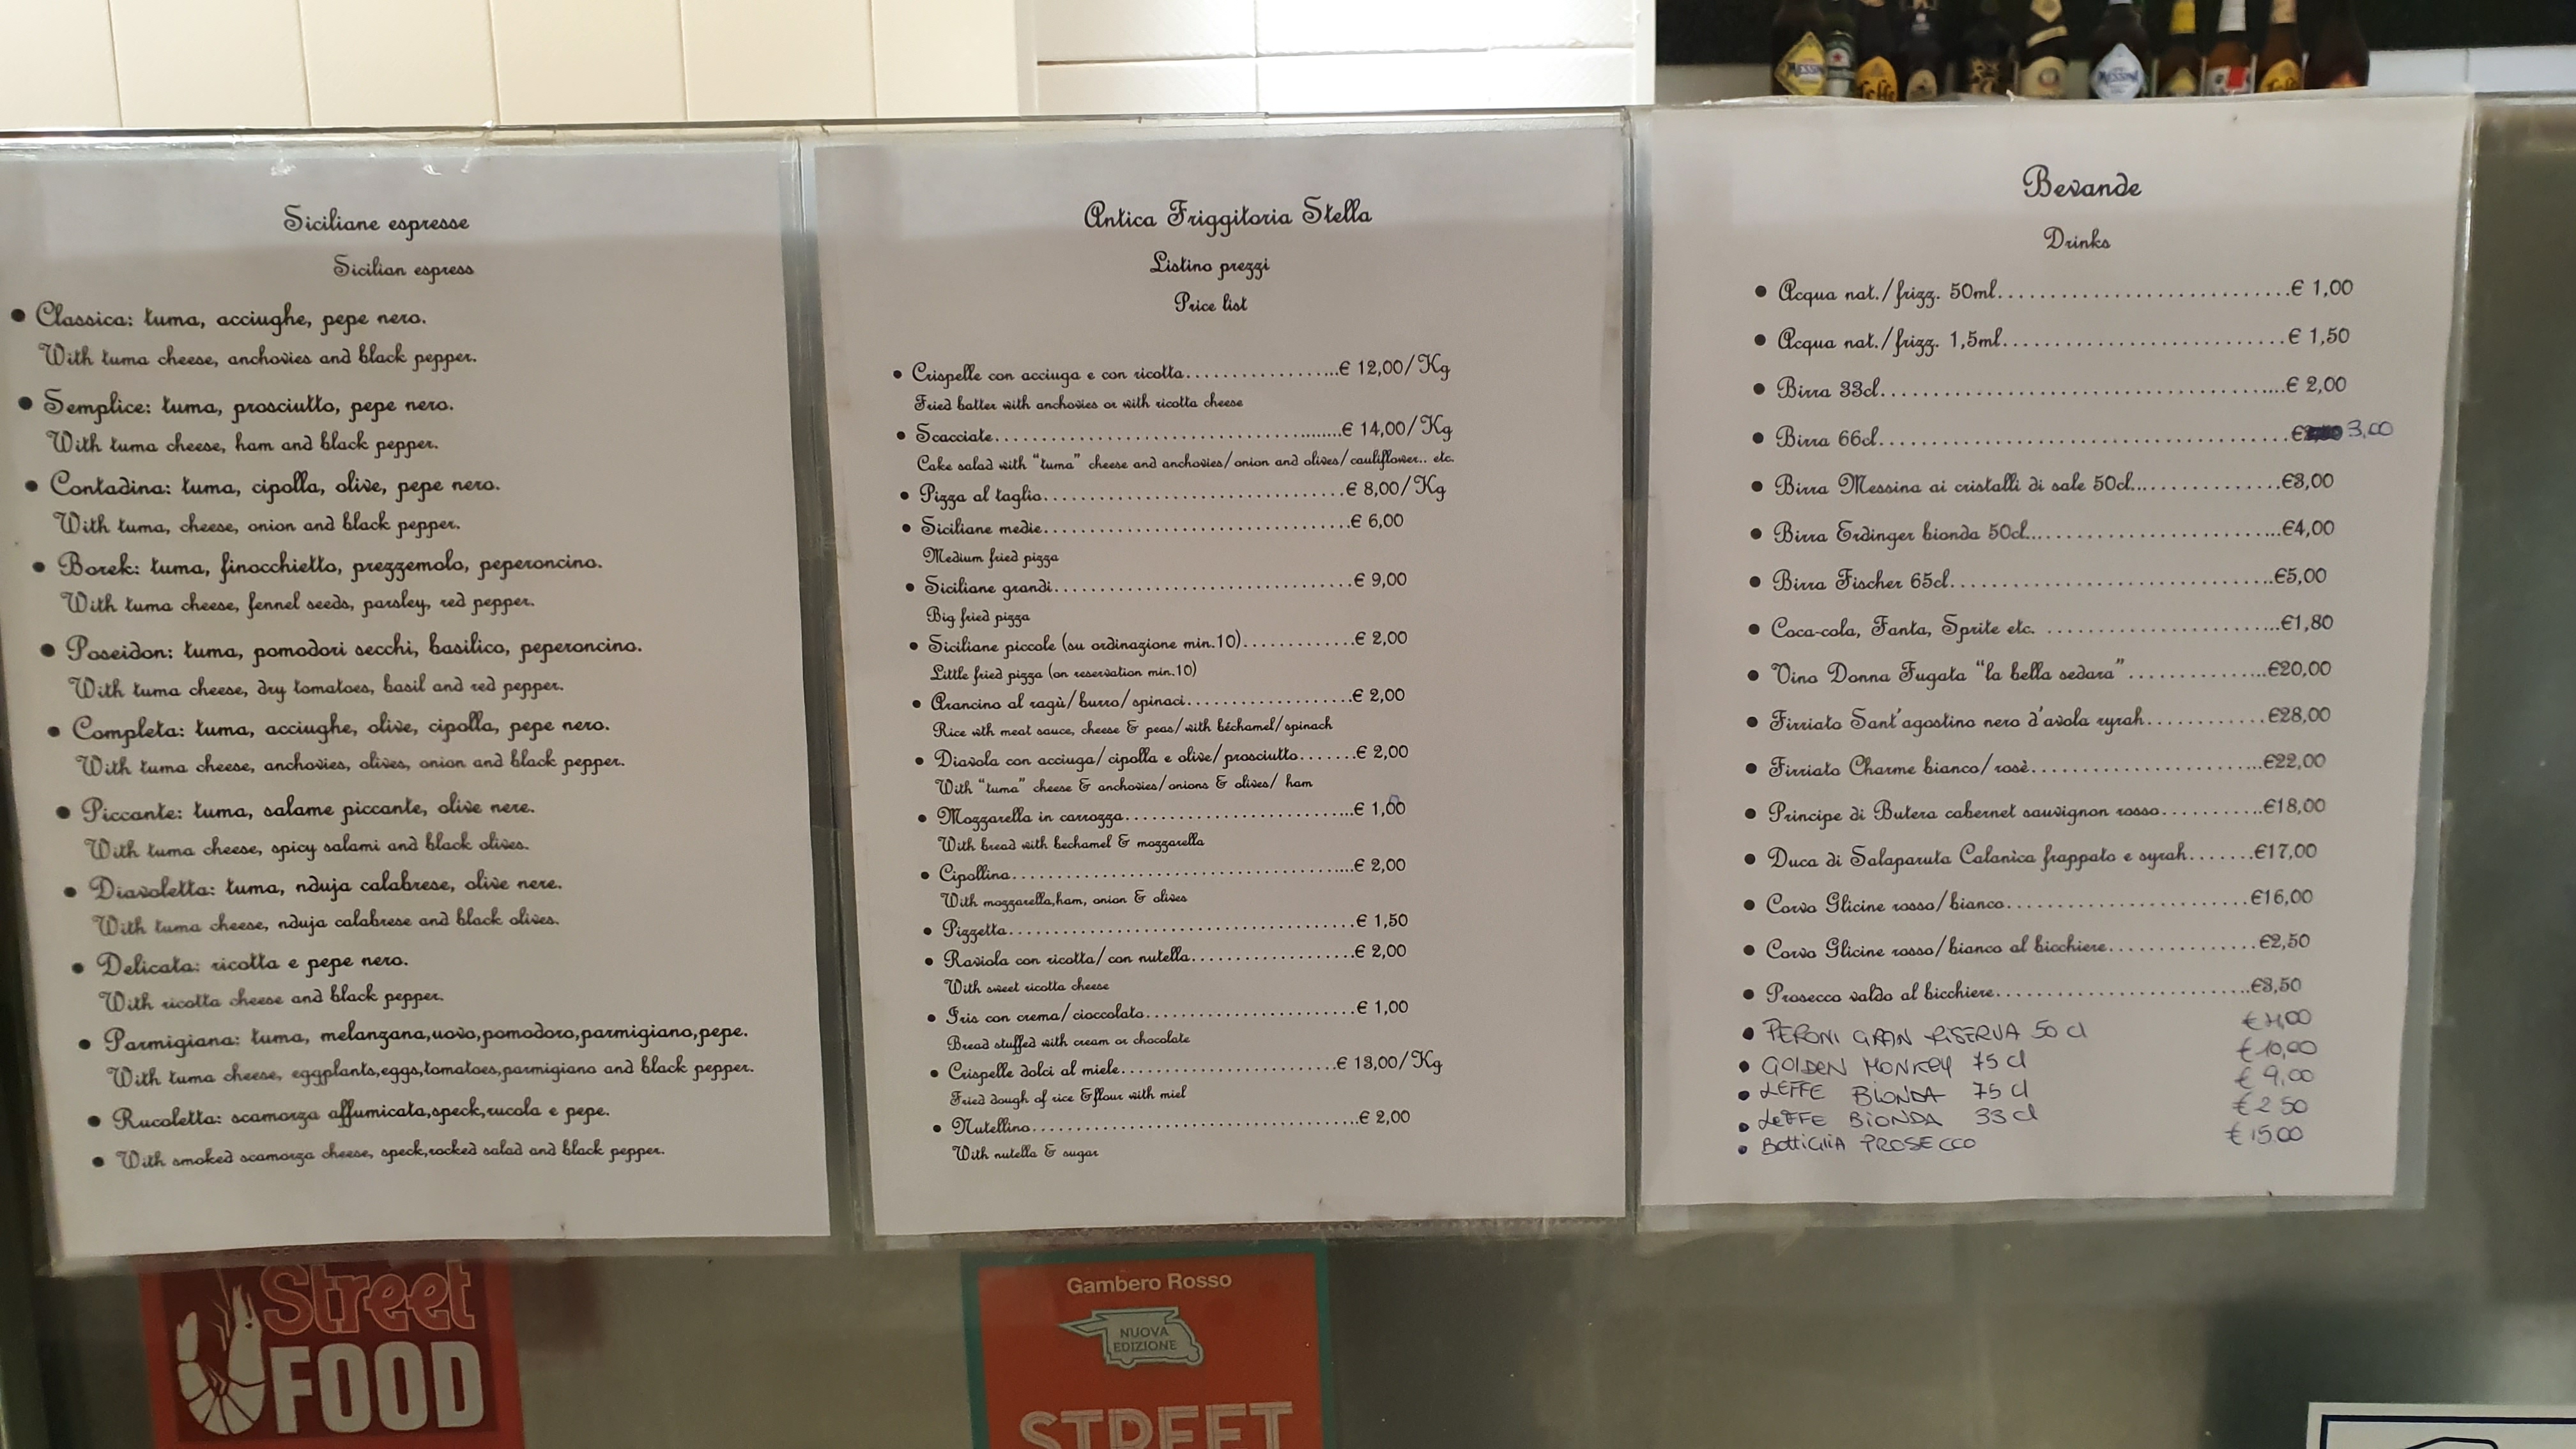 Siciliane espresse
Sicilian espress
• Classica: tuma, acciughe, pepe nero.
With tuma cheese, anchovies and black pepper.
• Semplice: tuma, prosciutto, pepe nero.
With tuma cheese, ham and black pepper.
• Contadina: tuma, cipolla, olive, pepe nero.
With tuma, cheese, onion and black pepper.
• Borek: tuma, finocchietto, prezzemolo, peperoncino.
With tuma cheese, fennel seeds, parsley, red pepper.
• Poseidon: tuma, pomodori secchi, basilico, peperoncino.
With tuma cheese, dry tomatoes, basil and red pepper.
• Completa: tuma, acciughe, olive, cipolla, pepe nero.
With tuma cheese, anchovies, olives, onion and black pepper.
• Piccante: tuma, salame piccante, olive nere.
With tuma cheese, spicy salami and black olives.
• Diavoletta: tuma, nduja calabrese, olive nere.
With tuma cheese, nduja calabrese and black olives.
• Delicata: ricotta e pepe nero.
With ricotta cheese and black pepper.
• Parmigiana: tuma, melanzana,uovo,pomodoro,parmigiano,pepe.
With tuma cheese, eggplants,eggs,tomatoes,parmigiano and black pepper.
• Rucoletta: scamorza affumicata,speck,rucola e pepe.
• With smoked scamorza cheese, speck,rocked salad and black pepper.
Antica Friggitoria Stella
Listino prezzi
Price list
• Crispelle con acciuga e con ricotta....................€ 12,00/Kg
Fried batter with anchovies or with ricotta cheese
• Scacciate........................................€ 14,00/Kg
Cake salad with "tuma" cheese and anchovies/onion and olives/cauliflower.. etc.
• Pizza al taglio..................................€ 8,00/Kg
• Siciliane medie..................................€ 6,00
Medium fried pizza
• Siciliane grandi.................................€ 9,00
Big fried pizza
• Siciliane piccole (su ordinazione min.10).............€ 2,00
Little fried pizza (on reservation min.10)
• Arancino al ragù/burro/spinaci...................€ 2,00
Rice wth meat sauce, cheese & peas/with béchamel/spinach
• Diavola con acciuga/cipolla e olive/prosciutto.......€ 2,00
With "tuma" cheese & anchovies/onions & olives/ ham
• Mozzarella in carrozza..........................€ 1,00
With bread with bechamel & mozzarella
• Cipollina.......................................€ 2,00
With mozzarella,ham, onion & olives
• Pizzetta........................................€ 1,50
• Raviola con ricotta/con nutella...................€ 2,00
With sweet ricotta cheese
• Iris con crema/cioccolato........................€ 1,00
Bread stuffed with cream or chocolate
• Crispelle dolci al miele.........................€ 13,00/Kg
Fried dough of rice &flour with miel
• Nutellino.......................................€ 2,00
With nutella & sugar
Bevande
Drinks
• Acqua nat./frizz. 50ml............................€ 1,00
• Acqua nat./frizz. 1,5ml...........................€ 1,50
• Birra 33cl........................................€ 2,00
• Birra 66cl........................................€ 3,00
• Birra Messina ai cristalli di sale 50cl................€3,00
• Birra Erdinger bionda 50cl..........................€4,00
• Birra Fischer 65cl..................................€5,00
• Coca-cola, Fanta, Sprite etc. ........................€1,80
• Vino Donna Fugata "la bella sedara"................€20,00
• Firriato Sant'agostino nero d'avola syrah............€28,00
• Firriato Charme bianco/rosè........................€22,00
• Principe di Butera cabernet sauvignon rosso..........€18,00
• Duca di Salaparuta Calanìca frappato e syrah.......€17,00
• Corvo Glicine rosso/bianco........................€16,00
• Corvo Glicine rosso/bianco al bicchiere..............€2,50
• Prosecco valdo al bicchiere.........................€3,50
• PERONI GRAN RISERVA 50 cl €
• GOLDEN MONKEY 75 cl € 10,00
• LEFFE BIONDA 75 cl € 9,00
• LEFFE BIONDA 33 cl € 2 50
• BOTTIGLIA PROSECCO € 15.00
Street
FOOD
Gambero Rosso
NUOVA
EDIZIONE
STREET